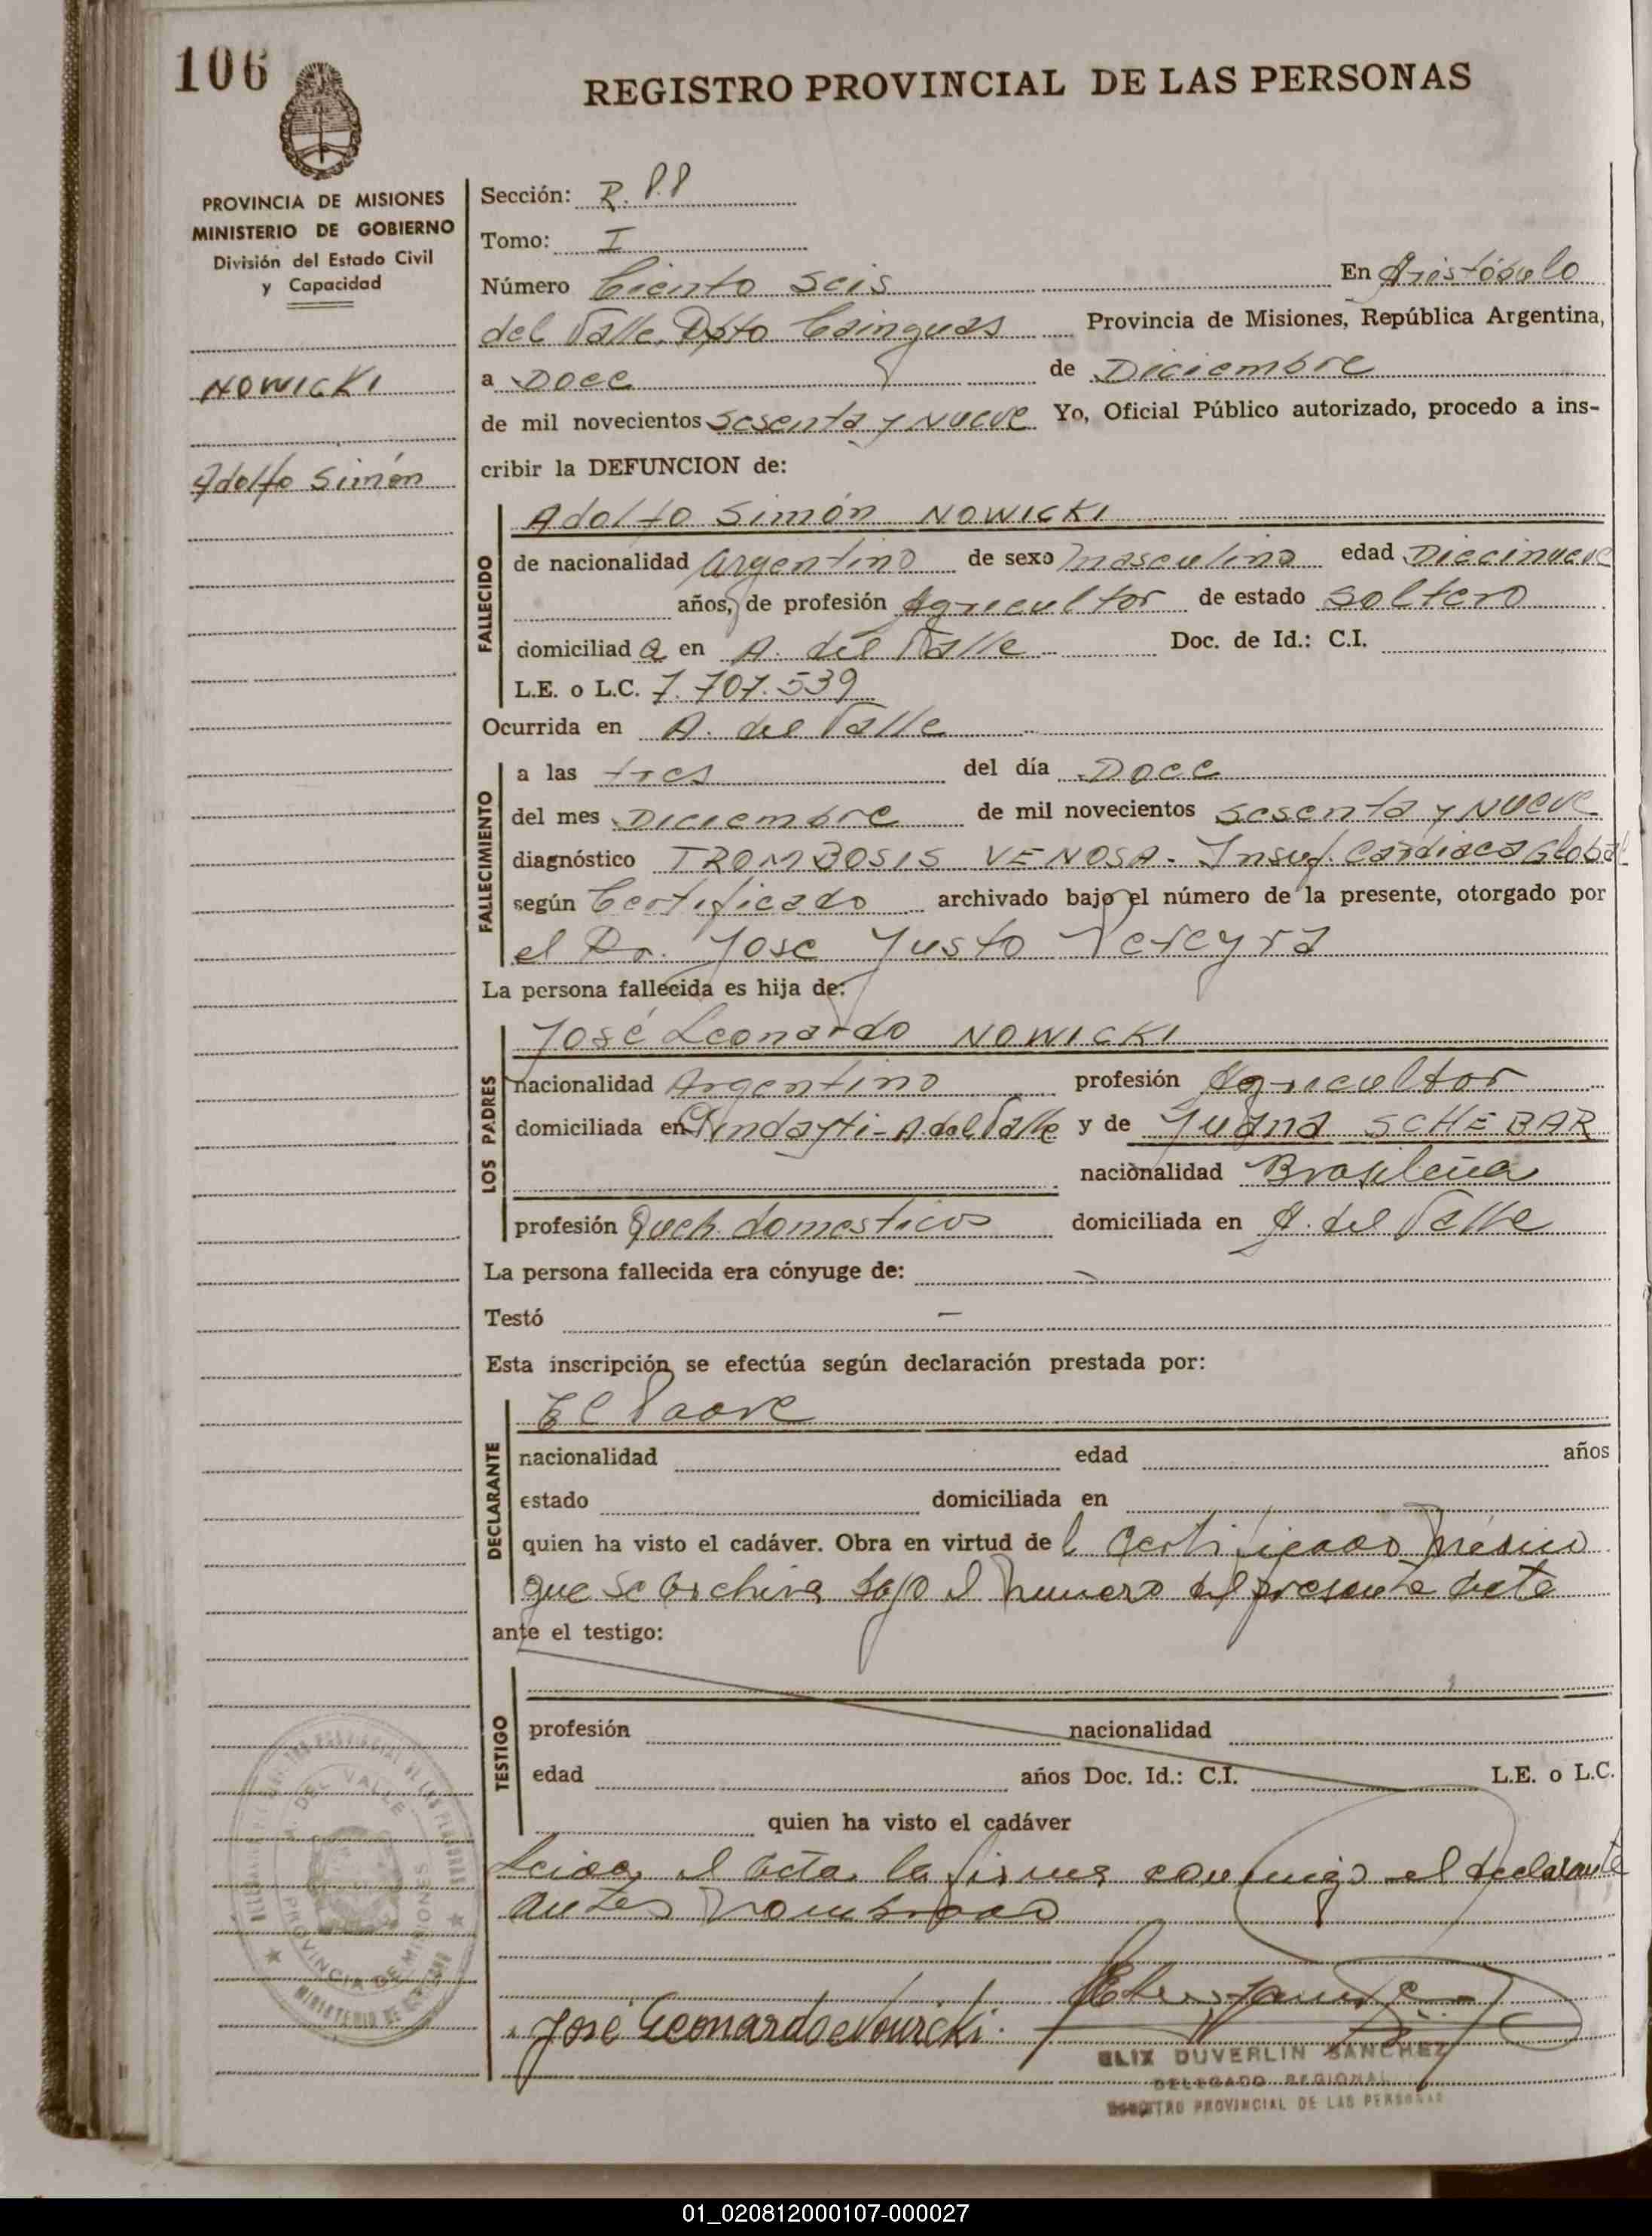 106
REGISTRO PROVINCIAL DE LAS PERSONAS
PROVINCIA DE MISIONES
MINISTERIO DE GOBIERNO
División del Estado Civil
y Capacidad
NOWICKI
Adolfo Simón
Sección: R.
Tomo: I
Número Ciento Seis En Aristóbulo
del Valle, Dpto Cainguas Provincia de Misiones, República Argentina,
a Doce de Diciembre
de mil novecientos Sesenta y Nueve Yo, Oficial Público autorizado, procedo a ins-
cribir la DEFUNCION de:
FALLECIDO
Adolfo Simón NOWICKI
de nacionalidad Argentino de sexo Masculino edad Diecinueve
años, de profesión Agricultor de estado Soltero
domiciliad a en A. del Valle Doc. de Id.: C.I.
L.E. o L.C. 7.707.539
Ocurrida en A. del Valle
FALLECIMIENTO
a las tres del día Doce
del mes Diciembre de mil novecientos Sesenta y Nueve
diagnóstico TROMBOSIS VENOSA - Insuf. Cardiaca Global
según Certificado archivado bajo el número de la presente, otorgado por
el Dr. Jose Justo Pereyra
La persona fallecida es hija de:
LOS PADRES
José Leonardo NOWICKI
nacionalidad Argentino profesión Agricultor
domiciliada en Pindayti - A. del Valle y de Juana SCHEBAR
nacionalidad Brasileña
profesión Queh. domesticos domiciliada en A. del Valle
La persona fallecida era cónyuge de: -
Testó -
Esta inscripción se efectúa según declaración prestada por:
DECLARANTE
El Padre
nacionalidad edad años
estado domiciliada en
quien ha visto el cadáver. Obra en virtud de l Certificado Médico
que se archiva bajo el numero del presente acta
ante el testigo:
TESTIGO
profesión nacionalidad
edad años Doc. Id.: C.I. L.E. o L.C.
quien ha visto el cadáver
Leida el acta la firma conmigo el declarante
antes nombrado
José Leonardo Nowicki.
ELIX DUVERLIN SANCHEZ
DELEGADO REGIONAL
REGISTRO PROVINCIAL DE LAS PERSONAS
A. DEL VALLE
PROVINCIA DE MISIONES
01_020812000107-000027